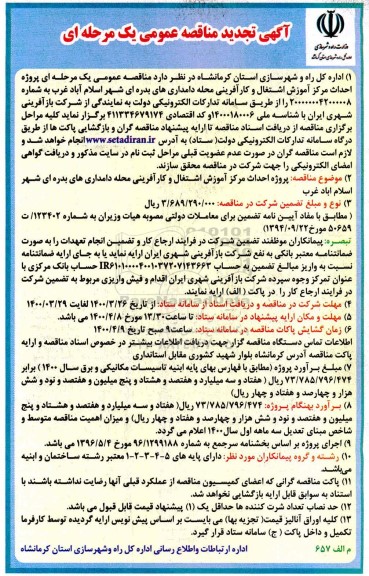 آگهی تجدید مناقصه عمومی یک مرحله ای
۱) اداره کل راه و شهرسازی استان کرمانشاه در نظر دارد مناقصه عمومی یک مرحله ای پروژه
احداث مرکز آموزش اشتغال و کارآفرینی محله دامداری های بدره ای شهر اسلام آباد غرب به شماره
را از طریق سامانه تدارکات الکترونیکی دولت به نمایندگی از شرکت بازآفرینی
شهری ایران با شناسه ملی ۱۴۰۰۰۱۸۰۰۰۶ و کد اقتصادی ۴۱۱۳۳۴۶۷۹۱۷۴ برگزار نماید کلیه مراحل
برگزاری مناقصه از دریافت اسناد مناقصه تا ارایه پیشنهاد مناقصه گران و بازگشایی پاکت ها از طریق
درگاه سامانه تدارکات الکترونیکی دولت( ستاد) به آدرس www.setadiran.ir انجام خواهد شد و
لازم است مناقصه گران در صورت عدم عضویت قبلی مراحل ثبت نام در سایت مذکور و دریافت گواهی
امضای الکترونیکی را جهت شرکت در مناقصه محقق سازند.
۲) موضوع مناقصه: پروژه احداث مرکز آموزش اشتغال و کارآفرینی محله دامداری های بدره ای شهر
اسلام اباد غرب
۳) نوع و مبلغ تضمین شرکت در مناقصه: ۳/۶۸۹/۲۹۰/۰۰۰ ریال
( مطابق با مفاد آیین نامه تضمین برای معاملات دولتی مصوبه هیات وزیران به شماره ۱۲۳۴۰۲/ت
۵۰۶۵۹ مورخ ۱۳۹۴/۰۹/۲۲)
تبصره: پیمانکاران موظفند تضمین شرکت در فرایند ارجاع کار و تضمین انجام تعهدات را به صورت
ضمانتنامه معتبر بانکی به نفع شرکت بازآفرینی شهری ایران ارایه نماید یا به جای ارایه ضمانتنامه
نسبت به واریز مبالغ تضمین به حساب حساب بانک مرکزی با
عنوان تمرکز وجوه سپرده شرکت بازآفرینی شهری ایران اقدام و فیش واریزی مربوط به تضمین شرکت
در فرایند ارجاع کار را در پاکت ( الف) ارایه نمایند.
۴) مهلت شرکت در مناقصه و دریافت اسناد از سامانه ستاد: از تاریخ ۱۴۰۰/۳/۲۶ لغایت ۱۴۰۰/۰۳/۲۹
۵) مهلت و مکان ارایه پیشنهاد در سامانه ستاد: تا ساعت ۱۳/۳۰ مورخ ۱۴۰۰/۴/۸ می باشد.
۶) زمان گشایش پاکات مناقصه در سامانه ستاد: ساعت ۹ صبح تاریخ ۱۴۰۰/۴/۹
اطلاعات تماس دستگاه مناقصه گزار جهت دریافت اطلاعات بیشتر در خصوص اسناد مناقصه و ارایه
پاکت مناقصه آدرس کرمانشاه بلوار شهید کشوری مقابل استانداری
۷) مبلغ برآورد پروژه (مطابق با فهارس بهای پایه ابنیه تاسیسات مکانیکی و برق سال ۱۴۰۰) برابر
۷۳/۷۸۵/۷۹۶/۴۷۴ ریال ( هفتاد و سه میلیارد و هفتصد و هشتاد و پنج میلیون و هفتصد و نود و شش
هزار و چهارصد و هفتاد و چهار ریال)
۸) برآورد بهنگام پروژه: ۷۳/۷۸۵/۷۹۶/۴۷۴ ریال( هفتاد و سه میلیارد و هفتصد و هشتاد و پنج
میلیون و هفتصد و نود و شش هزار و چهارصد و هفتاد و چهار ریال) و میزان اهمیت مناقصه متوسط و
شاخص مبنای تعدیل سه ماهه اول سال ۱۴۰۰ اعلام می گردد.
۹) اجرای پروژه بر اساس بخشنامه سرجمع به شماره ۹۶/۱۲۹۹۱۸۸ مورخ ۱۳۹۶/۵/۴ می باشد.
۱۰) رشته و گروه پیمانکاران مورد نظر: دارای پایه های ۵-۴-۳-۲-۱ معتبر رشته ساختمان و ابنیه
می باشد.
۱۱) پاکت مناقصه گرانی که اعضای کمیسیون مناقصه از عملکرد قبلی آنها رضایت نداشته باشند با
استناد به سوابق قابل ارایه بازگشایی نخواهد شد.
۱۲) حد نصاب تعداد شرکت کننده ها حداقل یک (۱) پیشنهاد قیمت قابل قبول می باشد.
۱۳) کلیه اوراق آنالیز قیمت( تجزیه بها) می بایست بر اساس پیش نویس ارایه گردیده توسط کارفرما
تکمیل و داخل پاکت ( ج) سامانه ستاد قرار گیرد.
م الف ۶۵۷
اداره ارتباطات واطلاع رسانی اداره کل راه وشهرسازی استان کرمانشاه